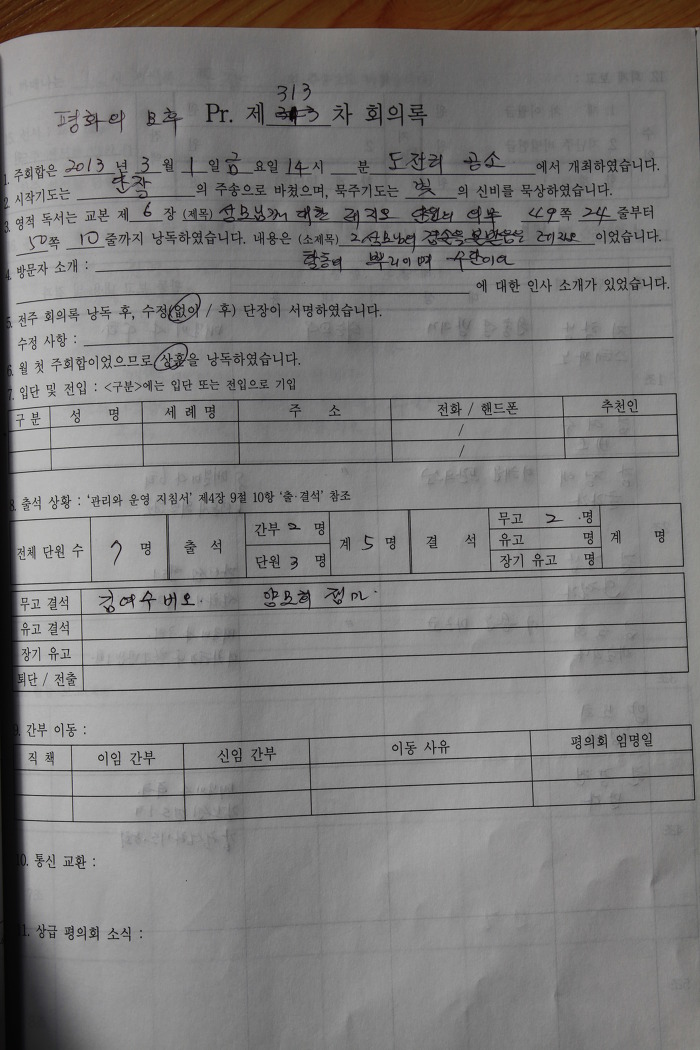 313
평화의 모후 Pr. 제 차 회의록
1. 주회합은 2013 년 3 월 1 일 금 요일 14시 분 도잔리 공소 에서 개최하였습니다.
2. 시작기도는 단장 의 주송으로 바쳤으며, 묵주기도는 빛 의 신비를 묵상하였습니다.
3. 영적 독서는 교본 제 6 장 (제목) 성모님께 대한 레지오 단원의 의무 49쪽 24 줄부터
50쪽 10 줄까지 낭독하였습니다. 내용은 (소제목) 2. 성모님의 겸손을 본받음은 레지오 이었습니다.
활동의 뿌리이며 수단이다
4. 방문자 소개 :
에 대한 인사 소개가 있었습니다.
5. 전주 회의록 낭독 후, 수정(없이 / 후) 단장이 서명하였습니다.
수정 사항 :
6. 월 첫 주회합이었으므로 상훈을 낭독하였습니다.
7. 입단 및 전입 : <구분>에는 입단 또는 전입으로 기입
구 분 성 명 세 례 명 주 소 전화 / 핸드폰 추천인
/
/
8. 출석 상황 : '관리와 운영 지침서' 제4장 9절 10항 '출·결석' 참조
전체 단원 수 7 명 출 석 간부 2 명 계 5 명 결 석 무고 2 명 계 명
단원 3 명 유고 명
장기 유고 명
무고 결석 김여수 비오. 양묘희 젬마.
유고 결석
장기 유고
퇴단 / 전출
9. 간부 이동 :
직 책 이임 간부 신임 간부 이동 사유 평의회 임명일
10. 통신 교환 :
11. 상급 평의회 소식 :